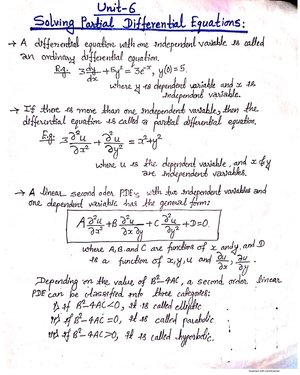 Unit-6
Solving Partial Differential Equations:
→ A differential equation with one independent variable is called
an ordinary differential equation.
E.g: 3 dy/dx + 5y² = 3e⁻ˣ, y(0)=5.
where y is dependent variable and x is
independent variable.
→ If there is more than one independent variable, then the
differential equation is called a partial differential equation.
E.g: 3 ∂²u/∂x² + ∂²u/∂y² = x²+y²
where u is the dependent variable, and x & y
are independent variables.
→ A linear second oder PDE's with two independent variables and
one dependent variable has the general form:
A ∂²u/∂x² + B ∂²u/∂x∂y + C ∂²u/∂y² + D=0.
where A, B and C are functions of x and y, and D
is a function of x, y, u and ∂u/∂x, ∂u/∂y.
Depending on the value of B²-4AC, a second order linear
PDE can be classified into three categories:
i) if B²-4AC<0, it is called elliptic
ii) if B²-4AC=0, it is called parabolic
iii) if B²-4AC>0, it is called hyperbolic.